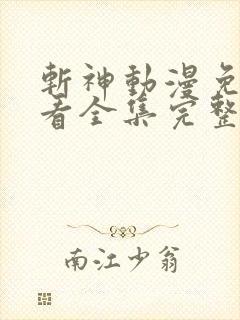 斬神動漫免
看全集完整
南江少翁